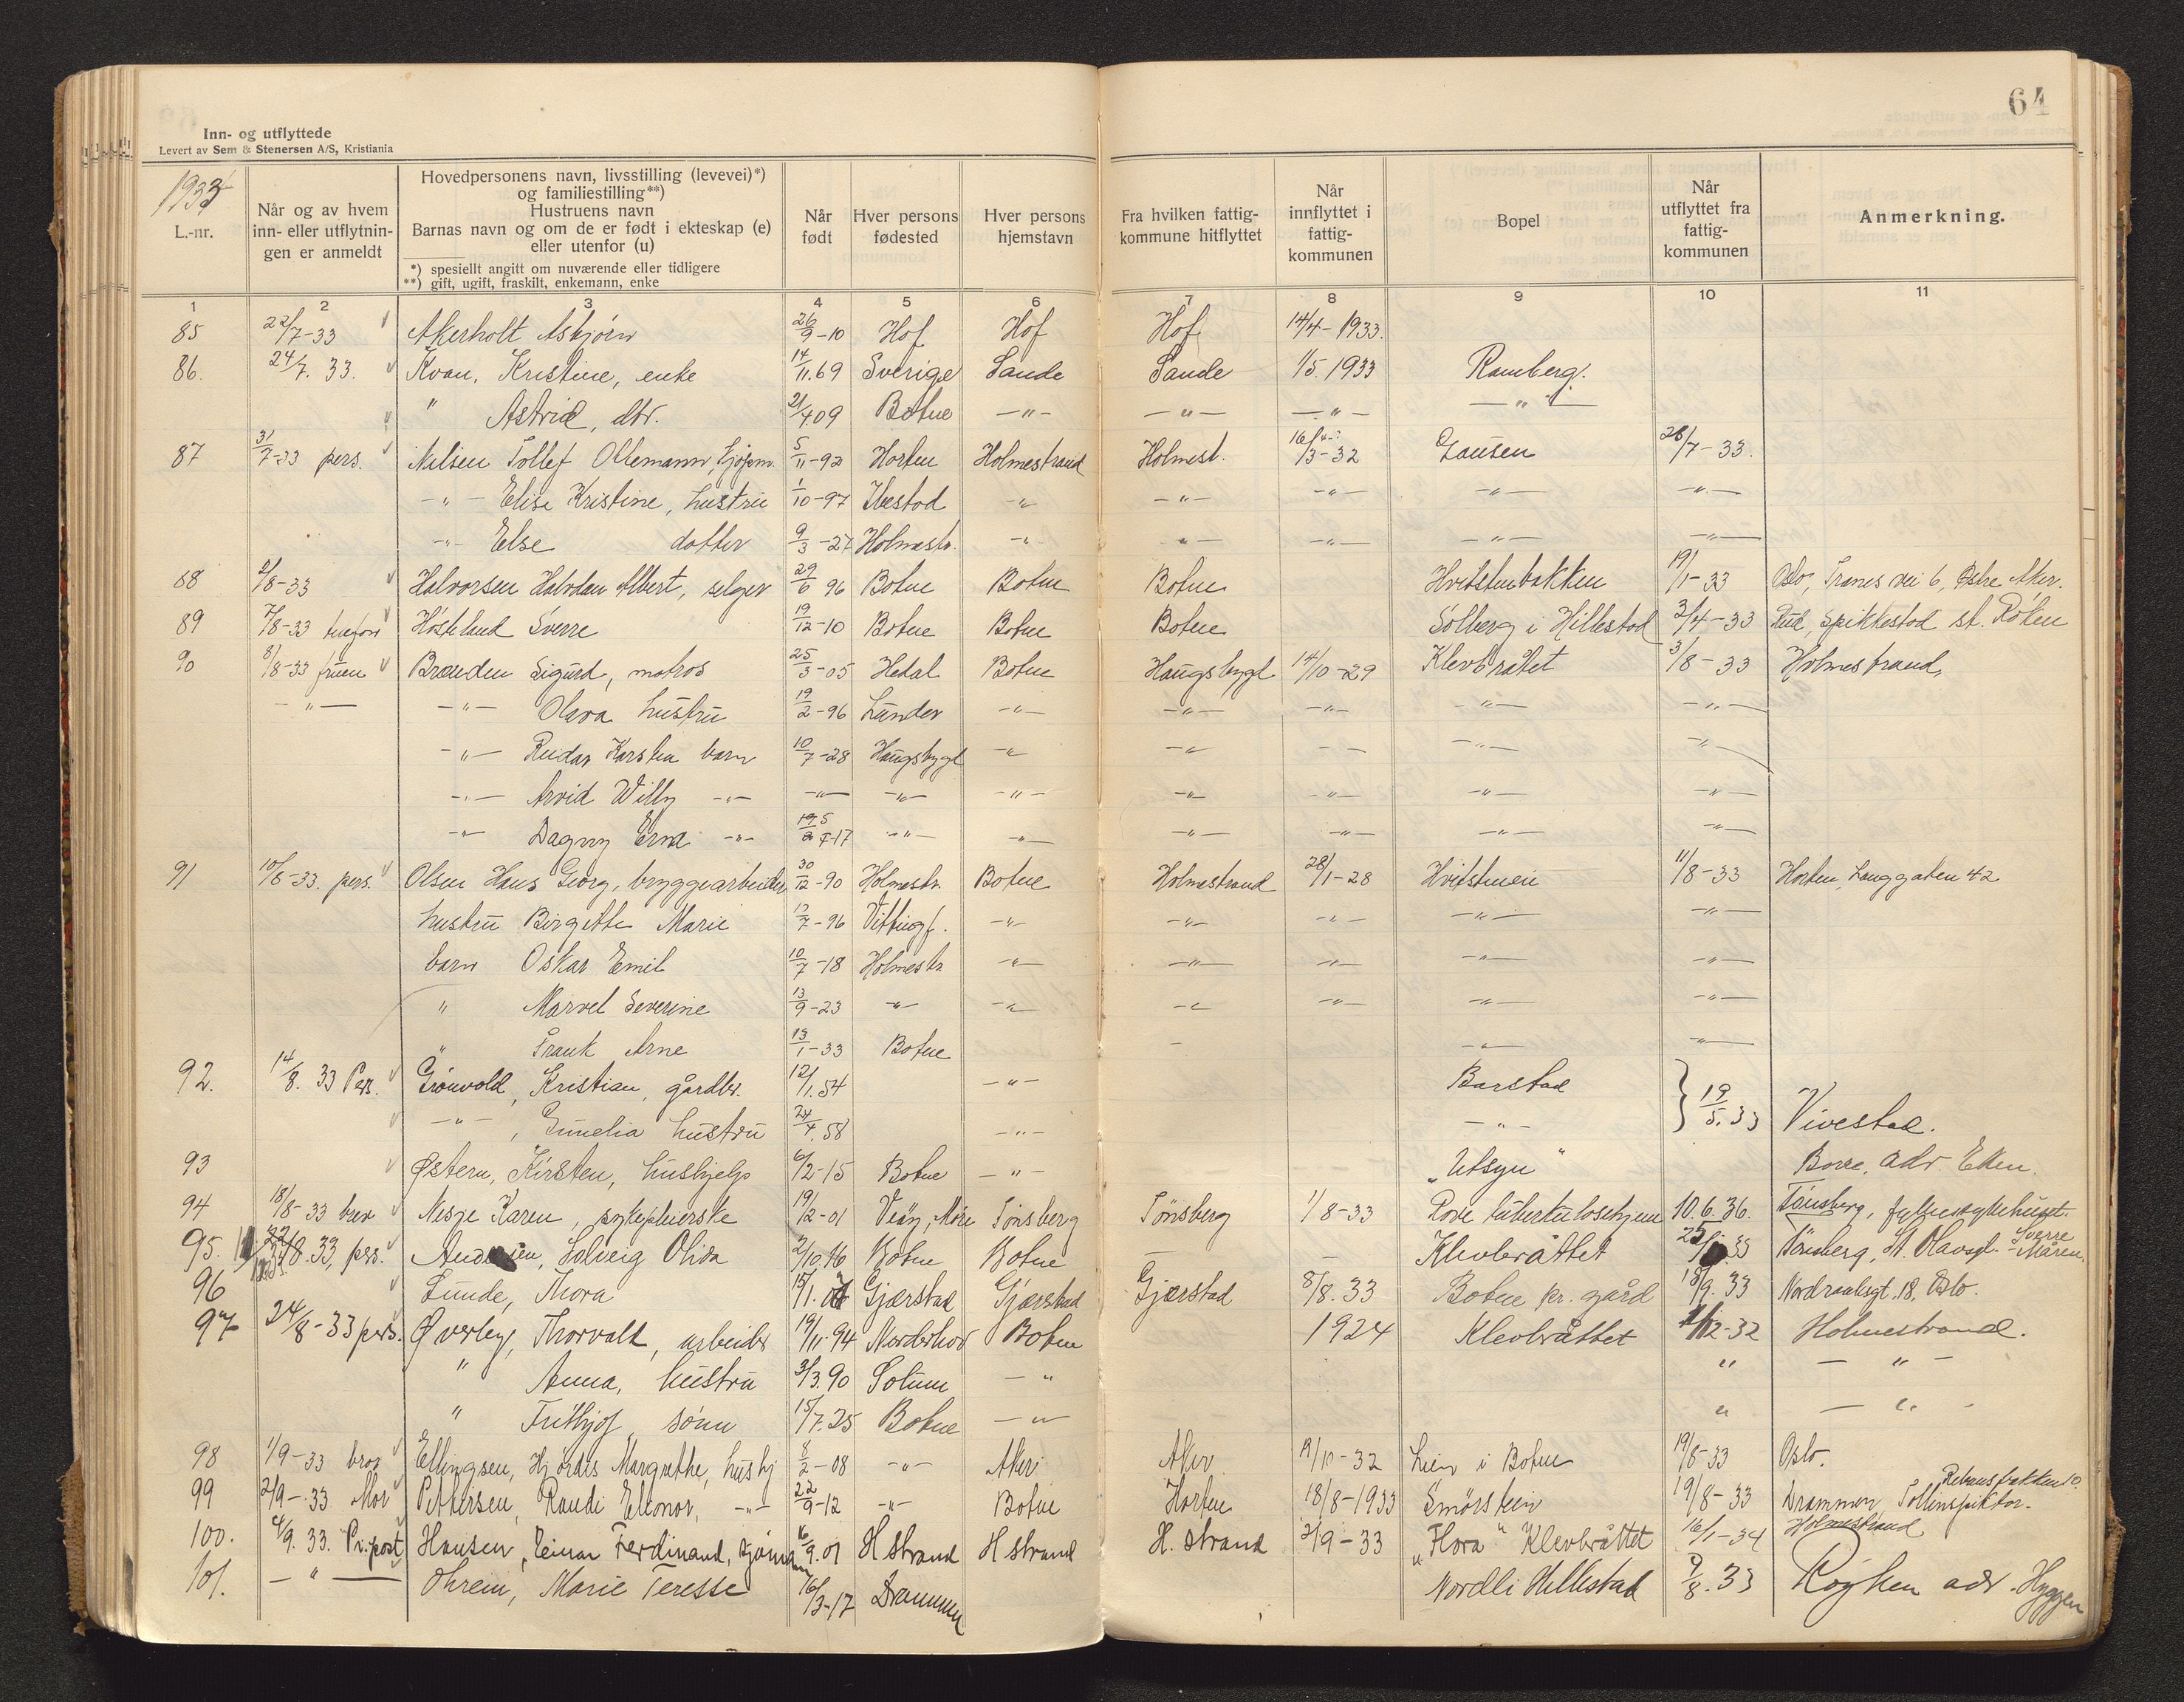 64
Inn- og utflyttede
Levert av Sem & Stenersen A/S, Kristiania
1933
L.-nr.
Når og av hvem inn- eller utflytningen er anmeldt
Hovedpersonens navn, livsstilling (levevei)*) og familiestilling**)
Hustruens navn
Barnas navn og om de er født i ekteskap (e) eller utenfor (u)
*) spesiellt angitt om nuværende eller tidligere
**) gift, ugift, fraskilt, enkemann, enke
Når født
Hver persons fødested
Hver persons hjemstavn
Fra hvilken fattigkommune hitflyttet
Når innflyttet i fattigkommunen
Bopel
Når utflyttet fra fattigkommunen
Anmerkning.
1 2 3 4 5 6 7 8 9 10 11
85 22/7-33 Akerholt Asbjørn 26/9-10 Hof Hof Hof 14/4-1933.
86. 24/7. 33. Kvan, Kristine, enke 14/11.69 Sverige Sande Sande 1/5.1933 Ramberg.
" Astrid, dtr. 21/4.09 Botne -"- -"- -"- -"-
87 31/7-33 pers. Nilsen Tollef Ollemann, sjøm. 5/11-92 Horten Holmestrand Holmest. 16/3-32 Gausen 28/7-33.
-"- Elise Kristine, hustru 1/10-97 Ibestad -"- -"- -"- -"- -"-
-"- Else datter 9/3-27 Holmestr. -"- -"- -"- -"- -"-
88 2/8-33 Halvorsen Halvdan Albert, selger 29/6 96 Botne Botne Botne Hvitstenbakken 19/1-33 Oslo, Tranes vei 6, Østre Aker.
89 7/8-33 Høsteland Sverre 19/12-10 Botne Botne Botne Solberg i Hillestad 3/4-33 Rud, Spikkestad st. Röken
90 8/8-33 fruen Brænden Sigurd, matros 25/3-05 Hedal Botne Haugsbygd 14/10-29 Klevbråtet 3/8-33 Holmestrand,
-"- -"- Olava hustru 19/2-96 Lunder -"- -"- -"- -"- -"-
-"- Reidar Karsten barn 10/7-28 Haugsbygd -"- -"- -"- -"- -"-
-"- Arvid Willy -"- -"- -"- -"- -"- -"- -"- -"-
-"- Dagny Erna -"- -"- -"- -"- -"- -"- -"-
91 10/8-33. pers. Olsen Hans Georg, bryggearbeider 30/12-90 Holmestr. Botne Holmestrand 28/1-28 Hvitstenen 11/8-33 Horten, Langgaten 42
hustru Birgitte Marie 17/7-96 Vittingf. -"- -"- -"- -"- -"-
barn Oskar Emil 10/7-18 Holmestr -"- -"- -"- -"- -"-
" Marvel Severine 13/9-23 -"- -"- -"- -"- -"- -"-
" Frank Arne 13/1-33 Botne - -"- -"-
92. 14/8. 33 Pers. Grönvold, Kristian, gårdbr. 12/1.54 -"- Barstad 19/5.33 Vivestad.
-"-, Gunelia hustru 24/4.58 -"- -"-
93 Østern, Kirsten, hushjelp 6/2-15 Botne -"- "Utsyn" Borre, adr. Eken.
94 18/8-33 brev Nesje Karen, sykepleierske 19/2-01 Veöy, Möre Tönsberg Tønsberg 1/8-33 Rove tuberkulosehjem 10.6.36. Tönsberg, fylkessykehuset.
95. 8.33, pers. Andersen, Solveig Olida 2/10.16 Botne Botne — — Klevbråttet Tönsberg, St. Olavsgt. Sverre Måren.
96 Lunde, Thora Gjærstad Gjærstad Gjærstad 8/8.33 Botne pr. gård 18/9.33 Nordraaksgt. 18, Oslo.
97 24/8-33 pers. Øverby, Thorvald, arbeider 19/11.94 Norderhov Botne 1924 Klevbråttet Holmestrand.
" Anna, hustru 3/3.90 Solum -"- " -"-
" Frithjof, sönn 15/7.25 Botne -"- " -"-
98 1/9-33 brev Ellingsen, Hjørdis Margrethe, hushj 8/2-08 -"- Aker Aker 19/10-32 Lien i Botne 19/8-33 Oslo.
99 2/9-33 Mor Pettersen, Randi Elenor, -"- 22/9-12 -"- Botne Horten 18/8-1933 Smørstein 19/8-33 Drammen, Tollinspektør.
100. 4/9. 33. Pr. post Hansen, Einar Ferdinand, sjömann 16/9.01 H strand H strand H. strand 2/9-33 "Flora" Klevbråttet 16/1-34 Holmestrand
101. -"- Ohrein, Marie Teresse 16/3-17 Drammen Nordli Hillestad 9/8.33 Röyken adr. Hyggen